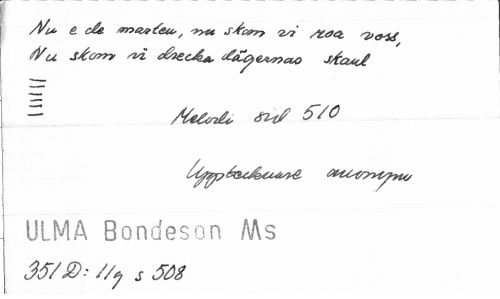 Nu e de marten, nu skom vi roa voss,
Nu skom vi drecka dägernas skaul
Melodi sid 510
Upptecknare anonym
ULMA Bondeson Ms
351 D: 11g s 508